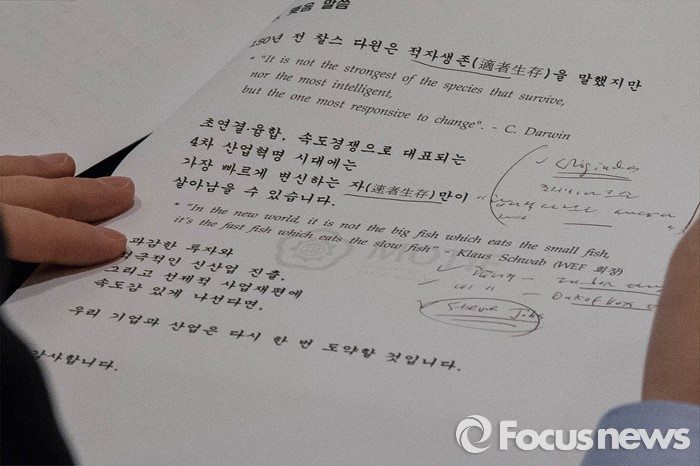 맺음 말씀
150년 전 찰스 다윈은 적자생존(適者生存)을 말했지만
* "It is not the strongest of the species that survive,
nor the most intelligent,
but the one most responsive to change". - C. Darwin
초연결·융합, 속도경쟁으로 대표되는
4차 산업혁명 시대에는
가장 빠르게 변신하는 자(速者生存)만이
살아남을 수 있습니다.
* "In the new world, it is not the big fish which eats the small fish,
it's the fast fish which eats the slow fish" - Klaus Schwab (WEF 회장)
과감한 투자와
적극적인 신산업 진출,
그리고 선제적 사업재편에
속도감 있게 나선다면,
우리 기업과 산업은 다시 한 번 도약할 것입니다.
감사합니다.
Steve Jobs
Focusnews